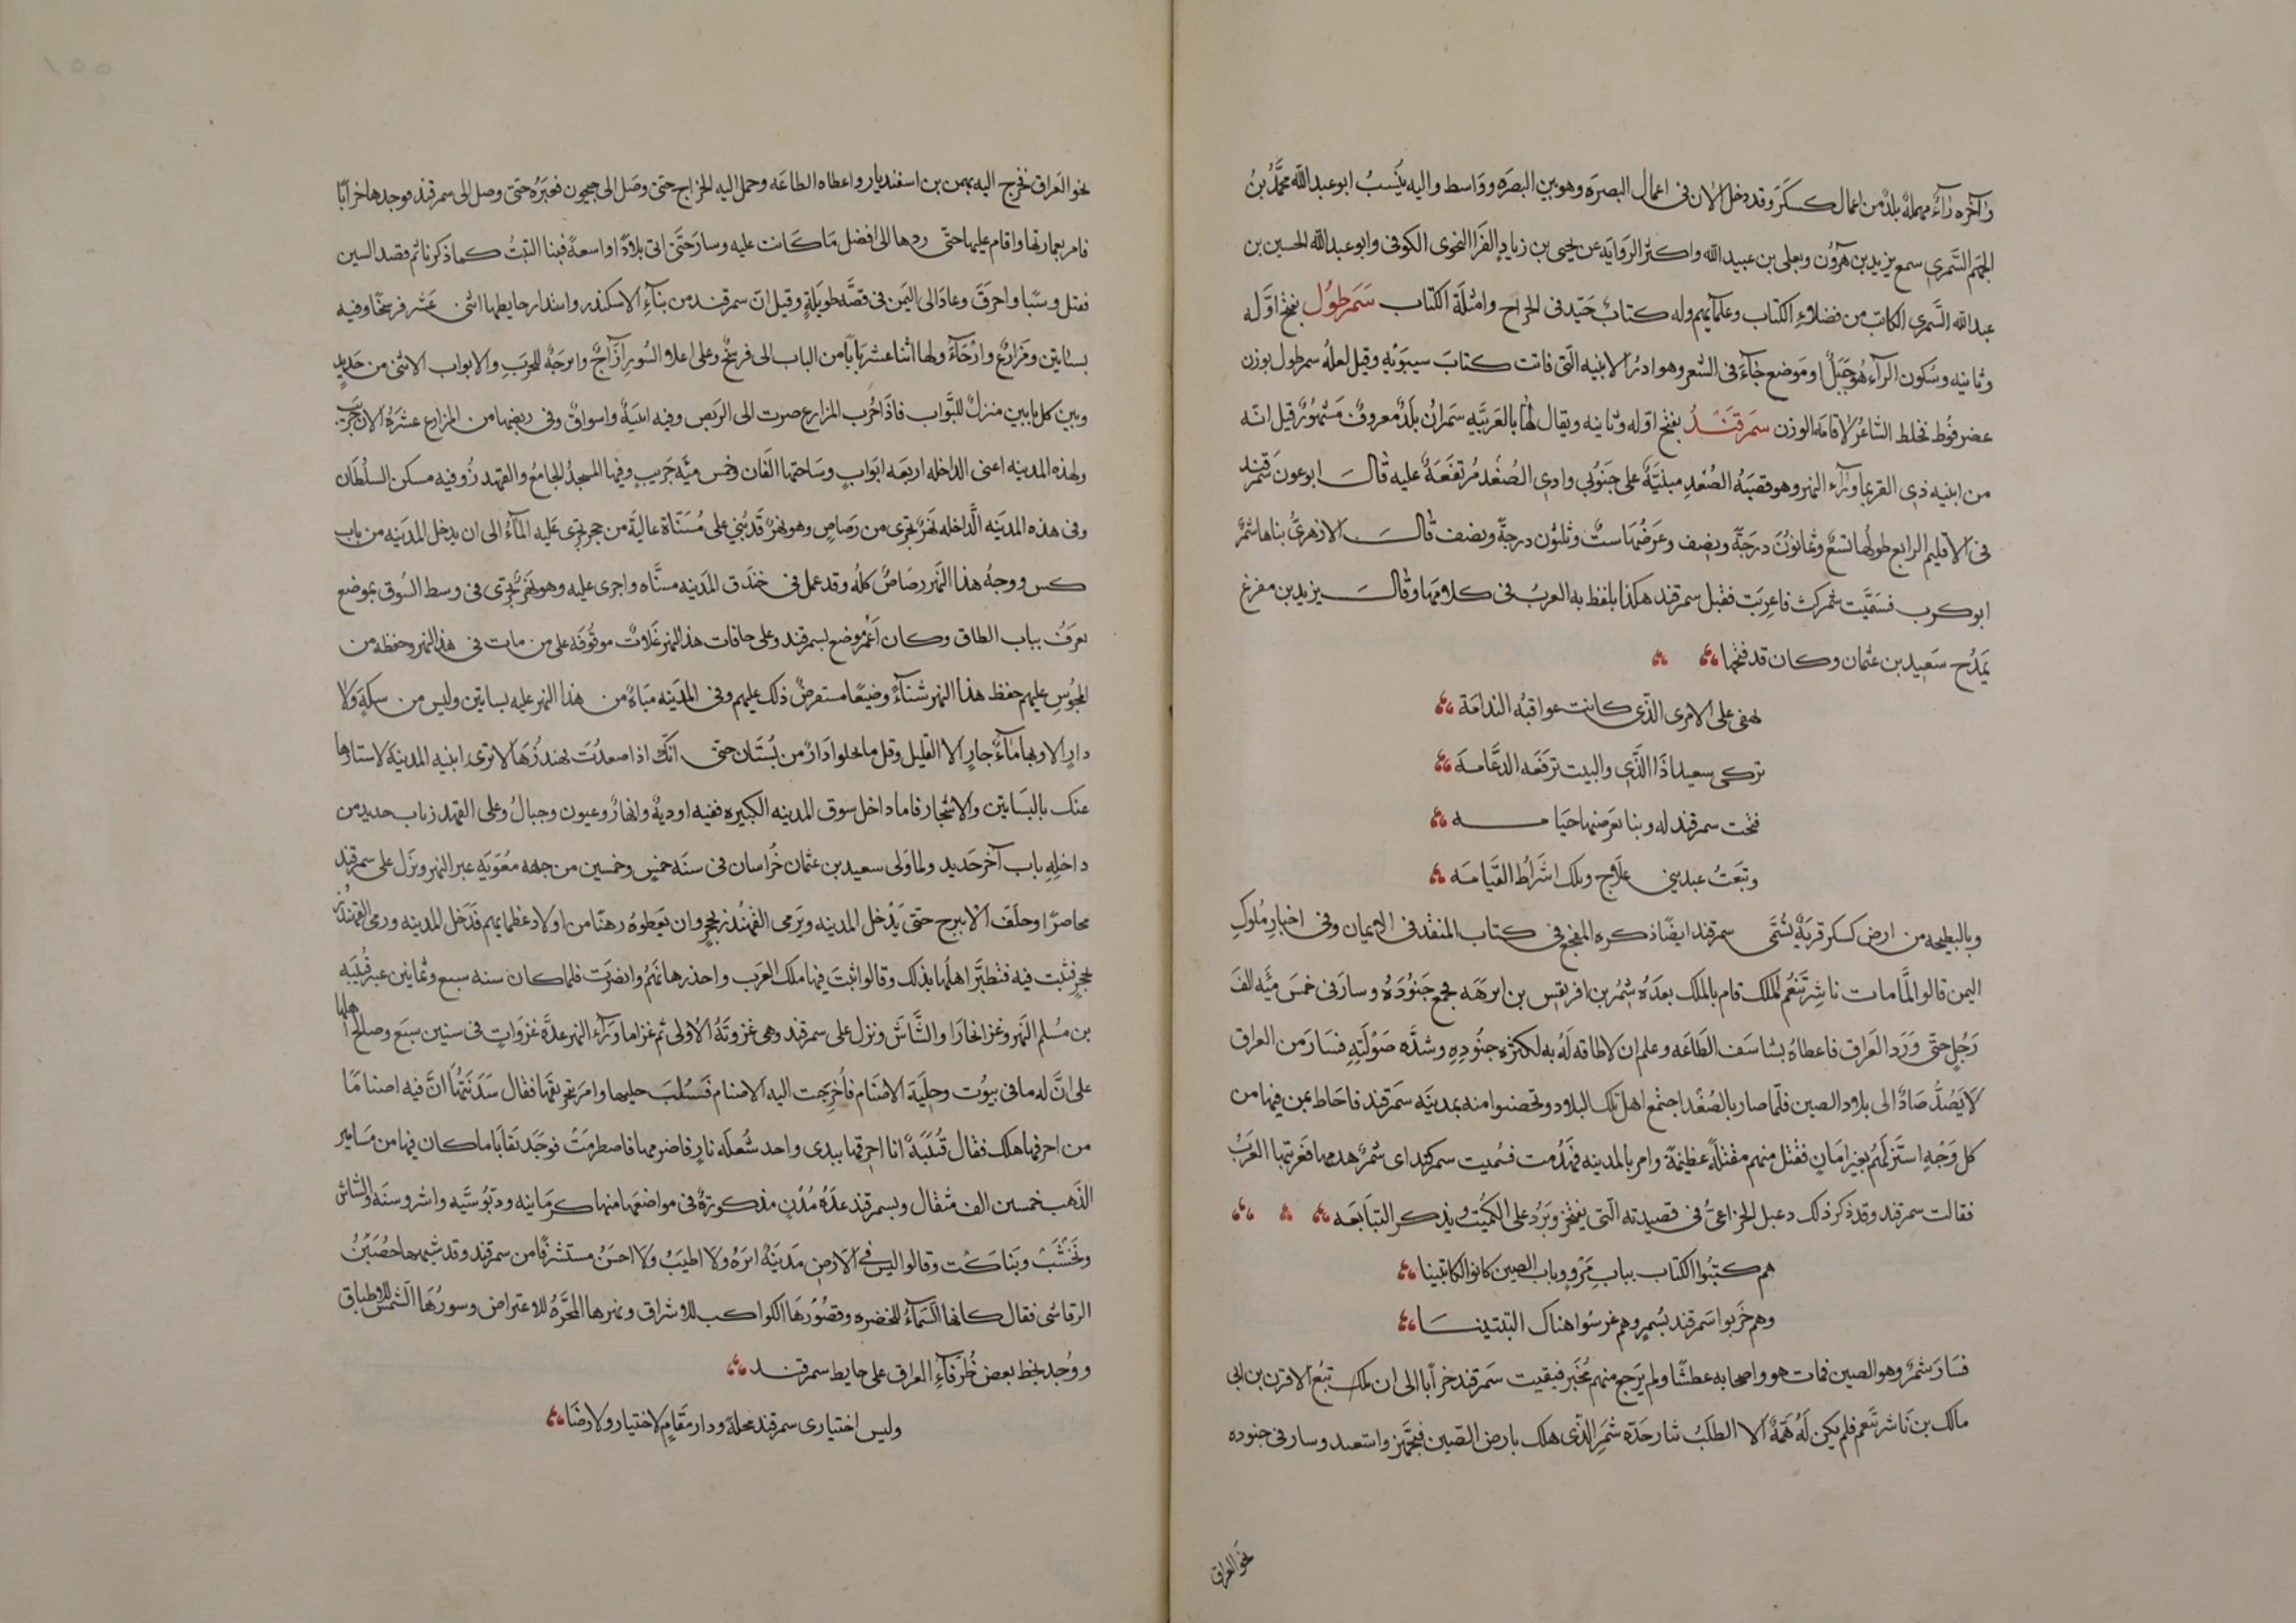 وآخره رآء مهملة بلد من اعمال كسكر وقد دخل الان فى اعمال البصره وهو بين البصره وواسط واليه ينسب ابو عبد الله محمد بن
الجهم السمرى سمع يزيد بن هرون ويعلى بن عبيد الله واكثر الروايه عن يحيى بن زياد الفرا النحوى الكوفى وابو عبد الله الحسين بن
عبد الله السمرى الكاتب من فضلاء الكتاب وعلمآيهم وله كتاب جيد فى الخراج وامثلة الكتاب سمرطول بفتح اوله
وثانيه وسكون الرآء هو جبل او موضع جآء فى الشعر وهو ادر الابنيه التى فاتت كتاب سيبويه وقيل لعله سمرطول بوزن
عضرفوط تخلط الشاعر لاقامه الوزن سمرقند بفتح اوله وثانيه ويقال لها بالعربيه سمران بلد معروف مشهور قيل انه
من ابنيه ذى القرنين بما ورآء النهر وهو قصبه الصغد مبنية على جنوبى وادى الصغد مرتفعة عليه قال ابو عون سمرقند
فى الاقليم الرابع طولها تسع وثمانون درجة ونصف وعرضها ست وثلثون درجة ونصف قال الازهرى بناها شمر
ابو كرب فسميت شمركث فاعربت فقيل سمرقند هكذا يلفظ به العرب فى كلامها وقال يزيد بن مفرغ
يمدح سعيد بن عثمان وكان قد فتحها
لهفى على الامرى الذى كانت عواقبه الندامة
تركى سعيدا ذا الندى والبيت ترفعه الدعامه
فتحت سمرقند له وبنا بعرضتها خيامه
وتبعت عبد بنى علاج وتلك اشراط القيامه
وبالبطيحه من ارض كسكر قرية تسمى سمرقند ايضا ذكره المفجع فى كتاب المنقذ فى الايمان وفى اخبار ملوك
اليمن قالوا لما مات ناشر ينعم الملك قام بالملك بعده شمر بن افريقس بن ابرهه فجمع جنوده وسار فى خمس مئه الف
رجل حتى ورد العراق فاعطاه بشاسف الطاعه وعلم ان لا طاقه له به لكثره جنوده وشده صولته فسار من العراق
لا يصد صاد الى بلاد الصين فلما صار بالصغد اجتمع اهل تلك البلاد وتحصنوا منه بمدينه سمرقند فاحاط بمن فيها من
كل وجه استنزلهم بغير امان فقتل منهم مقتلة عظيمة وامر بالمدينه فهدمت فسميت سمركند اى شمر هدمها فعربتها العرب
فقالت سمرقند وقد ذكر ذلك دعبل الخزاعى فى قصيدته التى يفتخر ويرد على الكميت ويذكر التبابعه
هم كتبوا الكتاب بباب مرو وباب الصين كانوا الكاتبينا
وهم خربوا سمرقند بشمر وهم غرسوا هناك التبتينا
فسار شمر وهو الصين فمات هو واصحابه عطشا ولم يرجع منهم مخبر فبقيت سمرقند خرابا الى ان ملك تبع الاقرن بن ابى
مالك بن ناشر ينعم فلم يكن له همة الا الطلب بثار جده شمر الذى هلك بارض الصين فتجهز واستعد وسار فى جنوده
نحو العراق
نحو العراق فخرج اليه بهمن بن اسفنديار واعطاه الطاعه وحمل اليه الخراج حتى وصل الى جيحون فعبره حتى وصل الى سمرقند فوجدها خرابا
فامر بعمارتها واقام عليها حتى ردها الى افضل ما كانت عليه وسار حتى اتى بلادا واسعة فبنا التبت كما ذكرنا ثم قصد السين
فقتل وسبا واحرق وعاد الى اليمن فى قصه طويلة وقيل ان سمرقند من بنآء الاسكندر واستدار حايطها اثنى عشر فرسخا وفيه
بساتين ومزارع وارحآء ولها اثنا عشر بابا من الباب الى فرسخ وعلى اعلا السور ازاج وابرجة للحرب والابواب الاثنى من حديد
وبين كل بابين منزل للنواب فاذا خرب المزارع صرت الى الربض وفيه ابنية واسواق وفى ربضها من المزارع عشره الاف جريب
ولهذه المدينه اعنى الداخله اربعه ابواب وساحتها الفان وخمس مئه جريب وفيها المسجد الجامع والقهندز وفيه مسكن السلطان
وفى هذه المدينه الداخله نهر تجرى من رصاص وهو نهر قد بنى على مسناة عالية من حجر تجرى عليه المآء الى ان يدخل المدينه من باب
كس ووجه هذا النهر رصاص كله وقد عمل فى خندق المدينه مسناه واجرى عليه وهو نهر تجرى فى وسط السوق بموضع
يعرف بباب الطاق وكان اعمر موضع بسمرقند وعلى حافات هذا النهر غلات موقوفه على من مات فى هذا النهر وحفظه من
المجوس عليهم حفظ هذا النهر شتآء وضيفا مستفرض ذلك عليهم وفى المدينه مياه من هذا النهر عليه بساتين وليس من سكة ولا
دار الا وبها مآء جار الا القليل وقل ما تخلوا دار من بستان حتى انك اذا صعدت بهندزها لا ترى ابنيه المدينة لاستاوها
عنك بالبساتين والاشجار فاما داخل سوق المدينه الكبيره ففيه اودية وانهار وعيون وجبال وعلى القهندز باب حديد من
داخله باب آخر حديد ولما ولى سعيد بن عثمان خراسان فى سنه خمس وخمسين من جهه معويه عبر النهر ونزل على سمرقند
محاصرا وحلف الا يبرح حتى يدخل المدينه ويرمى القهندز بحجر وان يعطوه رهنا من اولاد عظمايهم فدخل المدينه ورمى القهندز
بحجر فثبت فيه فتطير اهلها بذلك وقالوا ثبت فيها ملك العرب واخذ رهانهم وانصرت فلما كان سنه سبع وثمانين عبر قتيبه
بن مسلم النهر وغزا بخارا والشاش ونزل على سمرقند وهى غزوته الاولى ثم غزا ما ورآء النهر عده غزوات فى سنين سبع وصالح اهلها
على ان له ما فى بيوت وحلية الاصنام فأخرجت اليه الاصنام فسلب حليها وامر بتحريقها فقال سدنتها ان فيه اصناما
من احرقها هلك فقال قتيبة انا احرقها بيدى واحد شعله نار فاضرمها فاضطرمت فوجد بقايا ما كان فيها من مسامير
الذهب خمسين الف مثقال وبسمرقند عده مدن مذكورة فى مواضعها منها كرمانيه ودبوسيه واشروسنه والشاش
ونخشب وبناكت وقالوا ليس فى الارض مدينة انزه ولا اطيب ولا احسن مستشرفا من سمرقند وقد شبهها حضين
الرقاشى فقال كانها السمآء للخضره وقصورها الكواكب للاشراق ونهرها المجره للاعتراض وسورها الشمس للاطباق
ووجد بخط بعض ظرفآء العراق على حايط سمرقند
وليس اختيارى سمرقند محلة ودار مقام لاختيار ولا رضا